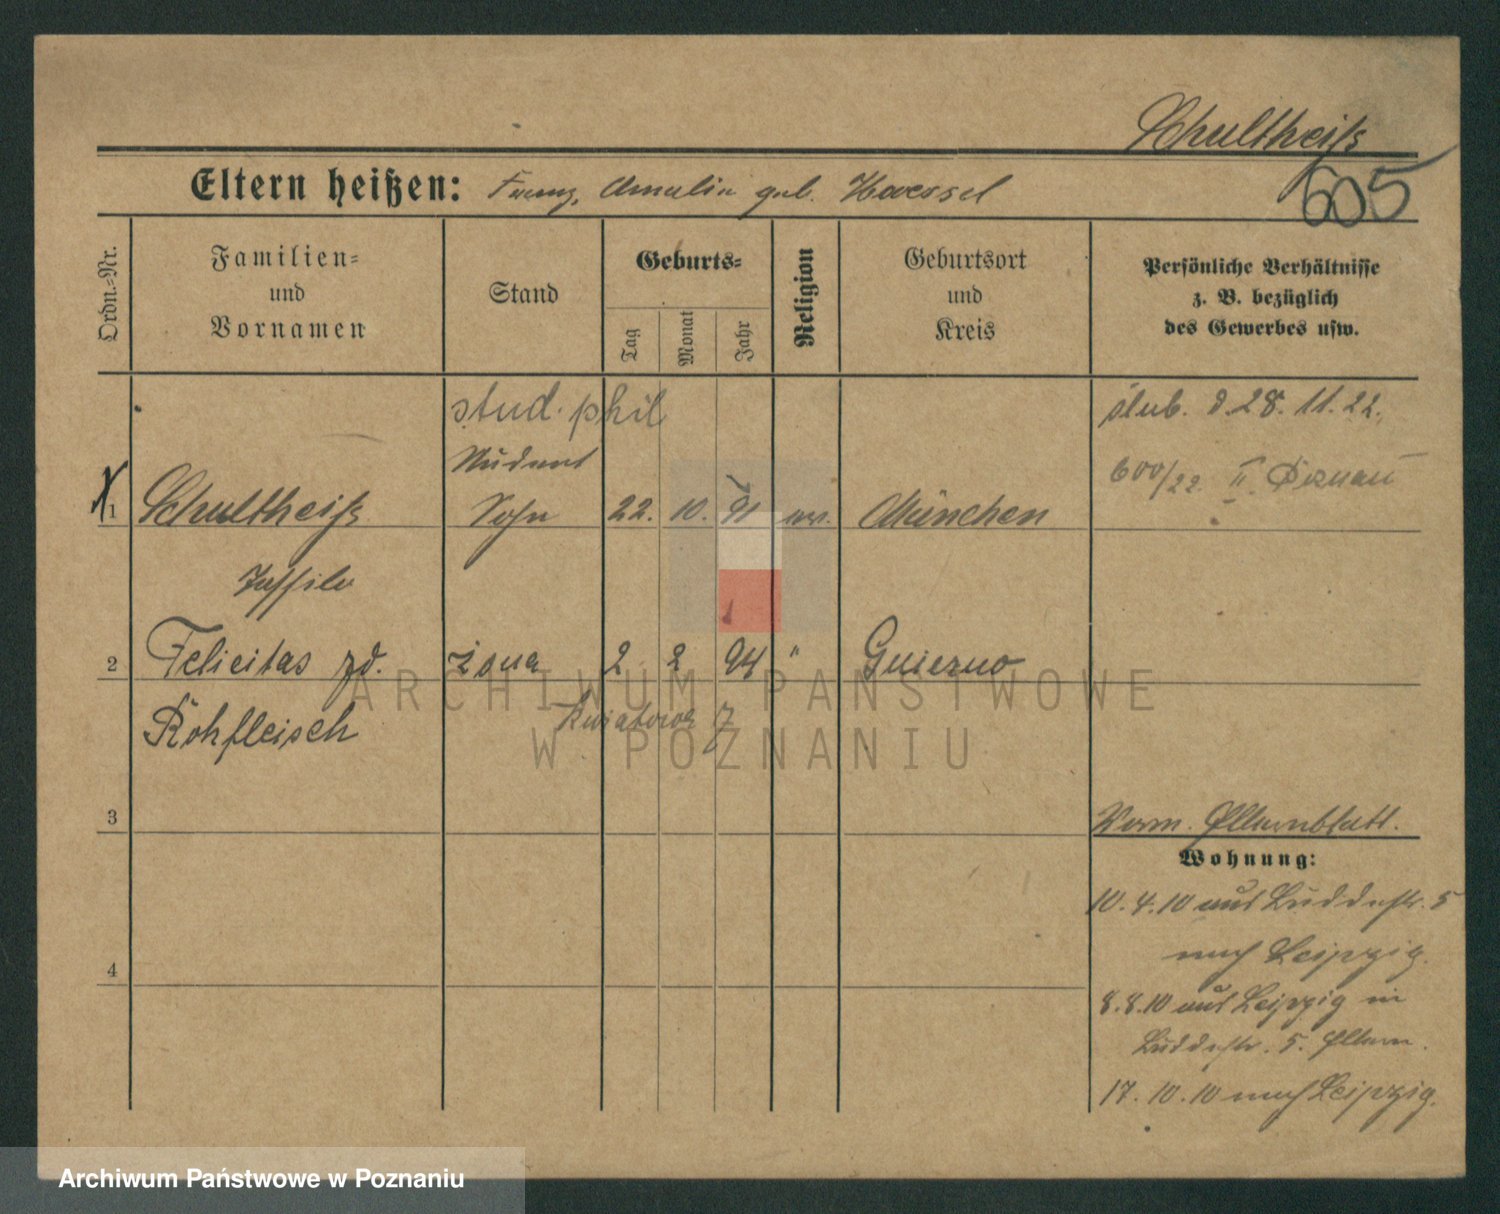 Schultheiß
605
Eltern heißen: Franz, Amalia geb. Haessel
Ordn.-Nr.
Familien-
und
Vornamen
Stand
Geburts-
Tag
Monat
Jahr
Religion
Geburtsort
und
Kreis
Persönliche Verhältnisse
z. B. bezüglich
des Gewerbes usw.
stud. phil
Student
ślub. d. 28. 11. 22.
600/22. II. Poznań
1 Schultheiß Sohn 22. 10. 91 ev. München
Tassilo
2 Felicitas zd. żona 2 2 94 " Gniezno
Rohfleisch
Kwiatowa 7
3
Vorm. Elternblatt.
Wohnung:
10. 4. 10 aus Luddestr. 5
nach Leipzig.
4
8. 8. 10 aus Leipzig in
Luddestr. 5. Eltern.
17. 10. 10 nach Leipzig.
ARCHIWUM PAŃSTWOWE
W POZNANIU
Archiwum Państwowe w Poznaniu